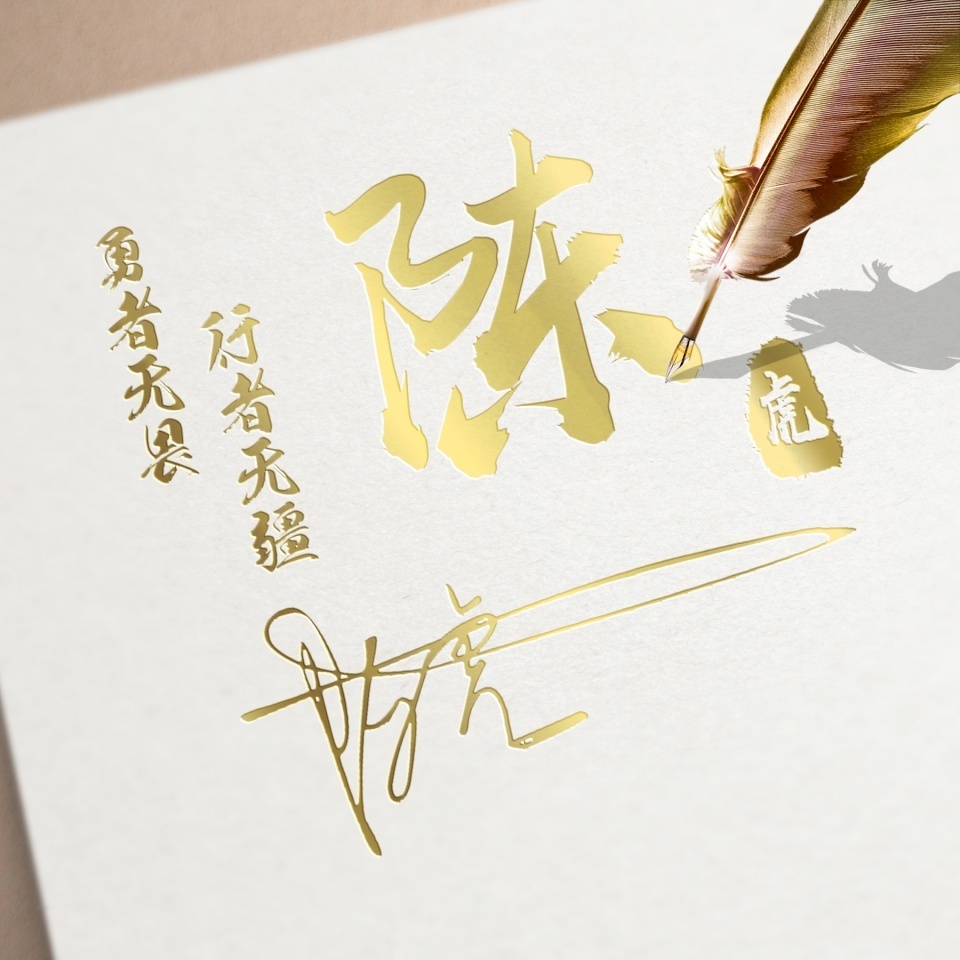 勇者无畏
行者无疆
陈
虎
陈虎